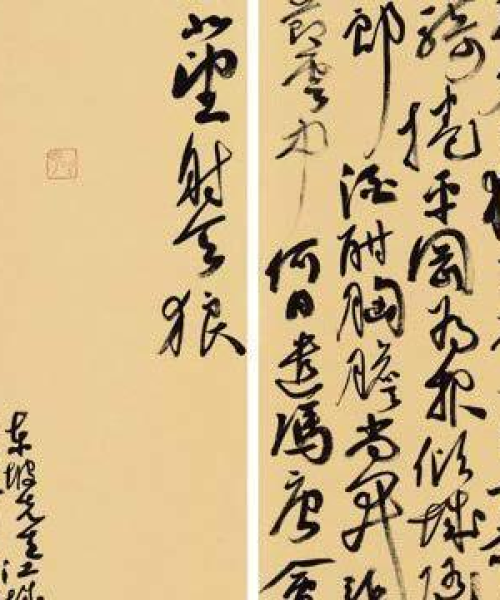 騎捲平岡為報傾城隨
郎酒酣胸膽尚開張
節雲中何日遣馮唐會
北望射天狼
東坡先生江城